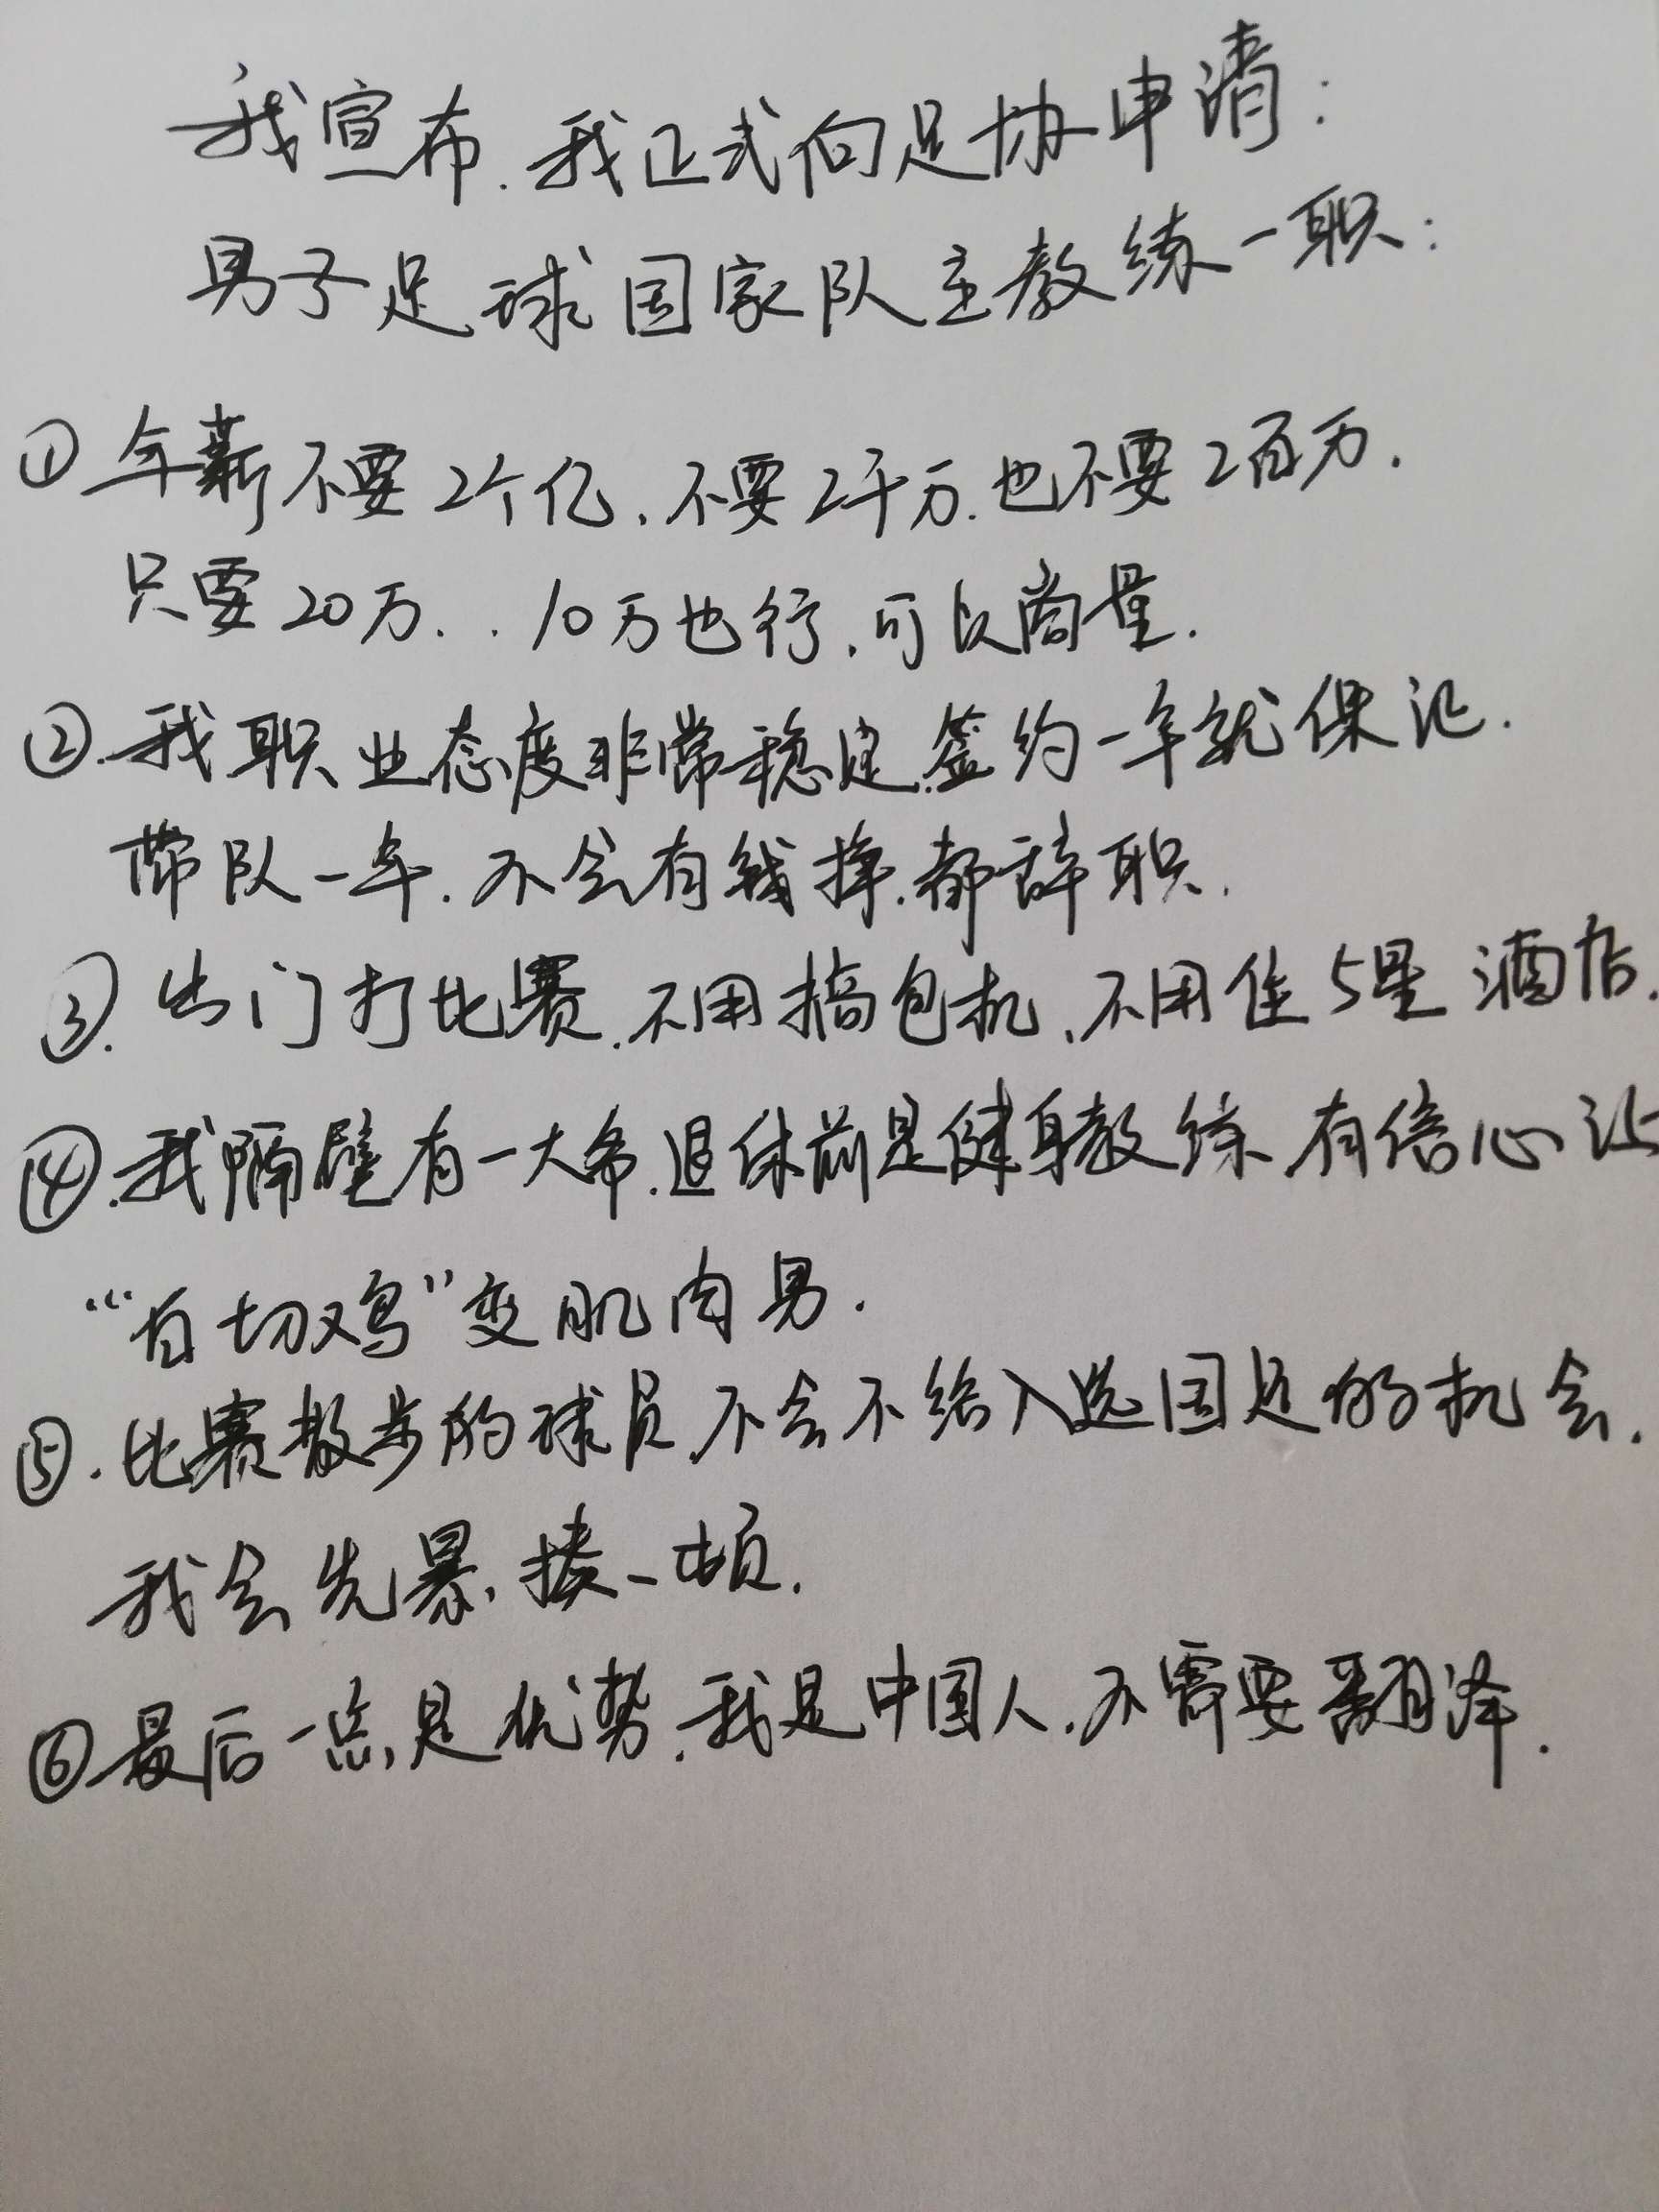 我宣布.我正式向足协申请:
男子足球国家队主教练一职:
①年薪不要2个亿.不要2千万.也不要2百万.
只要20万..10万也行.可以商量.
②.我职业态度非常稳定.签约一年就保证.
带队一年.不会有钱挣.都辞职.
③.出门打比赛.不用搞包机、不用住5星酒店.
④.我隔壁有一大爷.退休前是健身教练.有信心让
"白切鸡"变肌肉男.
⑤.比赛散步的球员.不会不给入选国足的机会.
我会先暴揍一顿.
⑥最后一点是优势.我是中国人.不需要翻译.